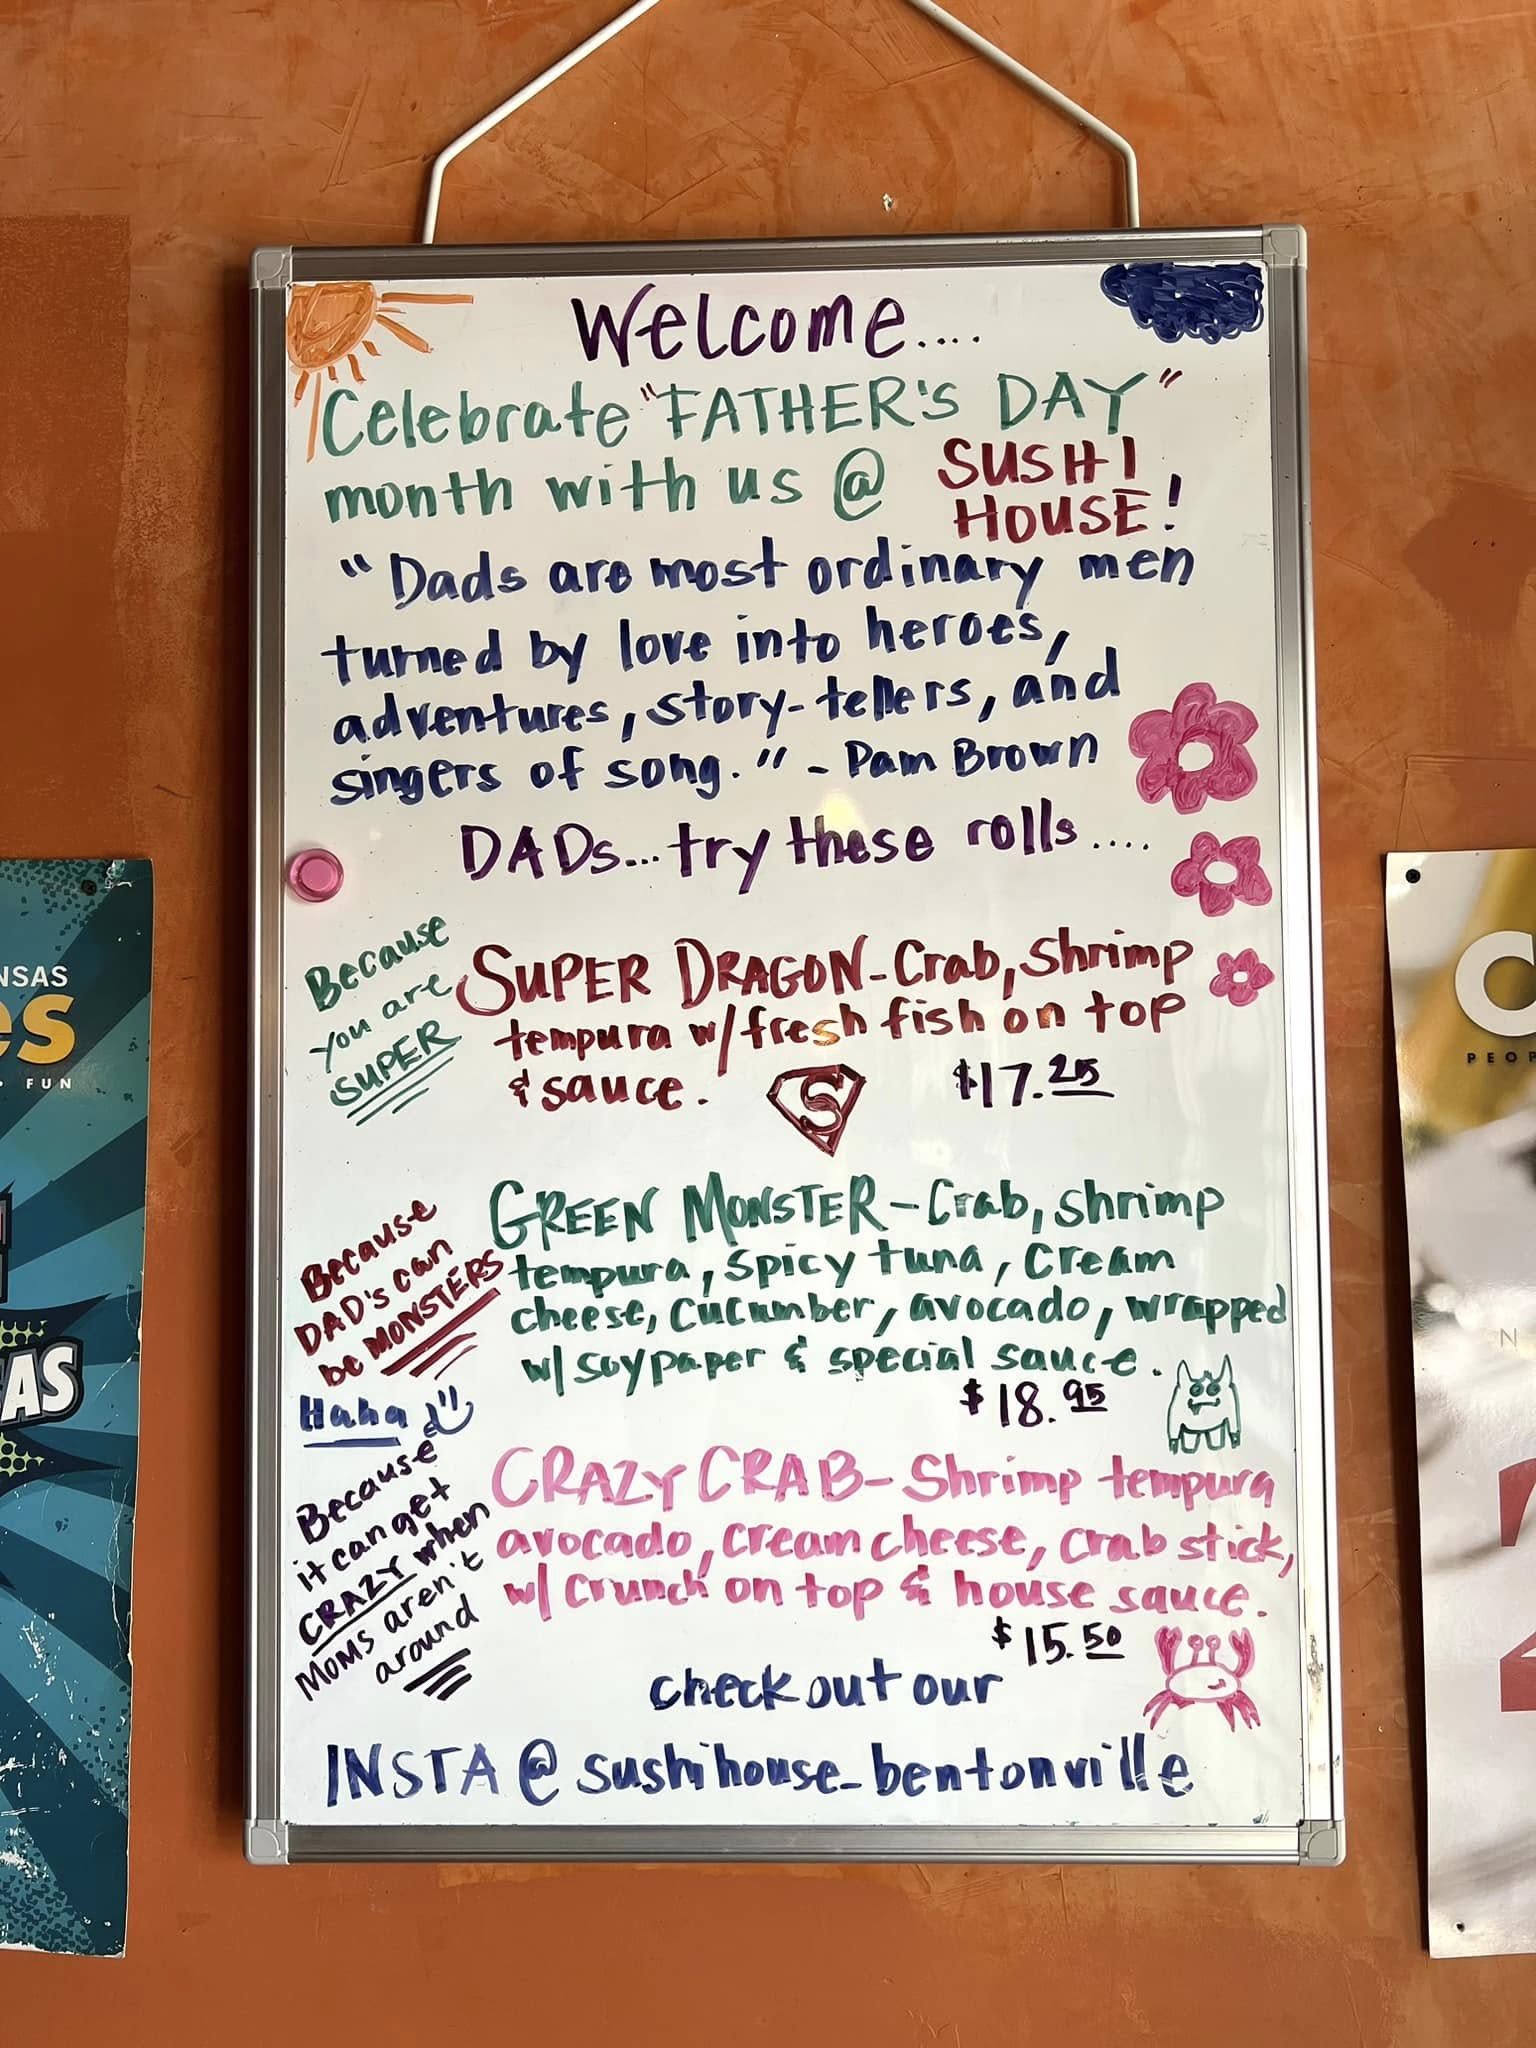 Welcome....
Celebrate "FATHER'S DAY"
month with us @ SUSHI
HOUSE!
"Dads are most ordinary men
turned by love into heroes,
adventures, story-tellers, and
singers of song." - Pam Brown
DADs... try these rolls....
Because
you are
SUPER
SUPER DRAGON - Crab, shrimp
tempura w/ fresh fish on top
& sauce.
S
$17.25
Because
DAD's can
be MONSTERS
Haha
GREEN MONSTER - Crab, shrimp
tempura, spicy tuna, cream
cheese, cucumber, avocado, wrapped
w/ soy paper & special sauce.
$18.95
Because
it can get
CRAZY when
Moms aren't
around
CRAZY CRAB - Shrimp tempura
avocado, cream cheese, crab stick,
w/ crunch on top & house sauce.
$15.50
check out our
INSTA @ sushihouse_bentonville
NSAS
es
• FUN
AS
C
PEOP
N
2